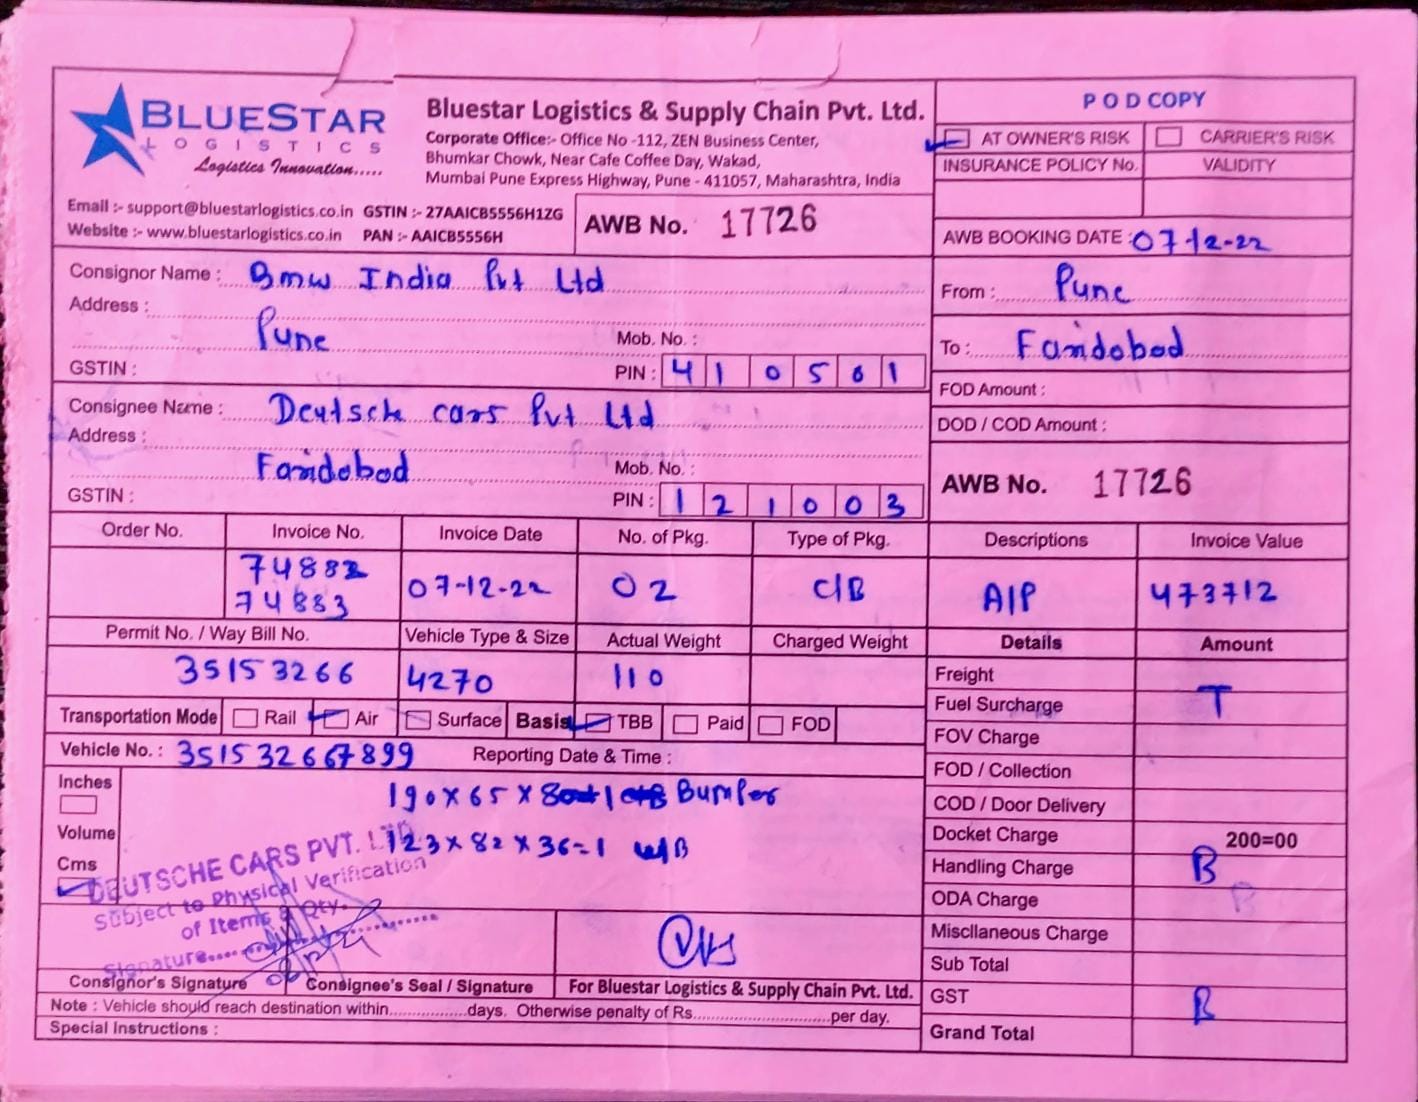 BLUESTAR
LOGISTICS
Logistics Innovation.....
Bluestar Logistics & Supply Chain Pvt. Ltd.
Corporate Office:- Office No -112, ZEN Business Center,
Bhumkar Chowk, Near Cafe Coffee Day, Wakad,
Mumbai Pune Express Highway, Pune - 411057, Maharashtra, India
Email :- support@bluestarlogistics.co.in GSTIN :- 27AAICB5556H1ZG
Website :- www.bluestarlogistics.co.in PAN :- AAICB5556H
AWB No. 17726
POD COPY
AT OWNER'S RISK CARRIER'S RISK
INSURANCE POLICY No. VALIDITY
AWB BOOKING DATE : 07-12-22
Consignor Name : Bmw India Pvt Ltd
Address :
Pune
Mob. No. :
GSTIN :
PIN : 410501
From : Pune
To : Faridobod
FOD Amount :
DOD / COD Amount :
Consignee Name : Deutsche cars Pvt Ltd
Address :
Faridobod
Mob. No. :
GSTIN :
PIN : 121003
AWB No. 17726
Order No. Invoice No. Invoice Date No. of Pkg. Type of Pkg. Descriptions Invoice Value
74882
74883
07-12-22 02 C/B A/P 473712
Permit No. / Way Bill No. Vehicle Type & Size Actual Weight Charged Weight Details Amount
35153266 4270 110
Transportation Mode Rail Air Surface Basis TBB Paid FOD
Vehicle No. : 351532667899 Reporting Date & Time :
Inches
Volume
Cms
190 x 65 x Bumper
123 x 82 x 36=1 W/B
DEUTSCHE CARS PVT. LTD
Subject to Physical Verification
of Items & Qty.
Signature
Consignor's Signature
Consignee's Seal / Signature
For Bluestar Logistics & Supply Chain Pvt. Ltd.
Note : Vehicle should reach destination within................days. Otherwise penalty of Rs............................per day.
Special Instructions :
Freight
T
Fuel Surcharge
FOV Charge
FOD / Collection
COD / Door Delivery
Docket Charge 200=00
Handling Charge B
ODA Charge
Miscllaneous Charge
Sub Total
GST B
Grand Total